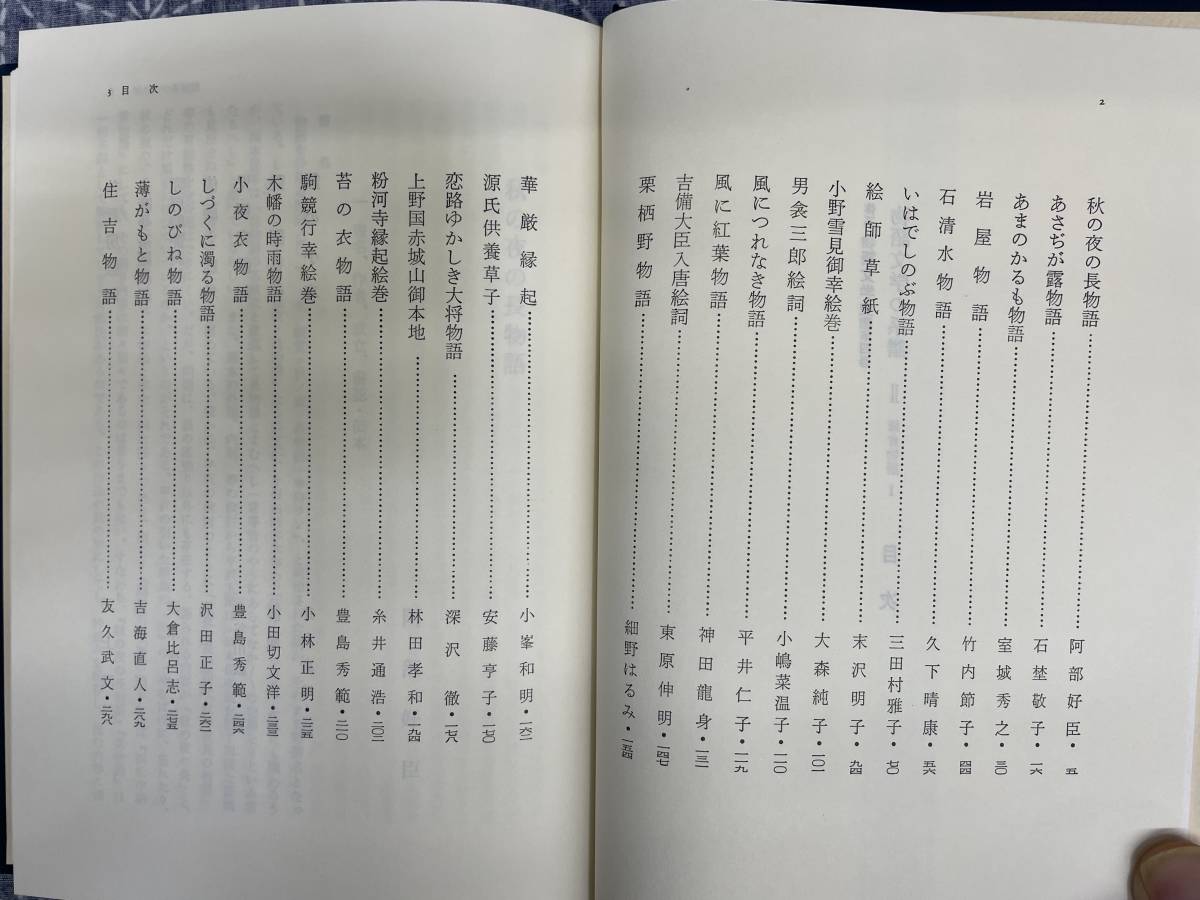 2
秋の夜の長物語……阿部好臣・五
あさぢが露物語……石埜敬子・一六
あまのかるも物語……室城秀之・三〇
岩屋物語……竹内節子・四四
石清水物語……久下晴康・五六
いはでしのぶ物語……三田村雅子・七〇
絵師草紙……末沢明子・九四
小野雪見御幸絵巻……大森純子・一〇一
男衾三郎絵詞……小嶋菜温子・一一〇
風につれなき物語……平井仁子・一一九
風に紅葉物語……神田龍身・一三一
吉備大臣入唐絵詞……東原伸明・一四七
栗栖野物語……細野はるみ・一五四
3 目次
華厳縁起……小峯和明・一六二
源氏供養草子……安藤亨子・一七〇
恋路ゆかしき大将物語……深沢徹・一七八
上野国赤城山御本地……林田孝和・一九四
粉河寺縁起絵巻……糸井通浩・二〇三
苔の衣物語……豊島秀範・二一〇
駒競行幸絵巻……小林正明・二二五
木幡の時雨物語……小田切文洋・二三三
小夜衣物語……豊島秀範・二四六
しづくに濁る物語……沢田正子・二六二
しのびね物語……大倉比呂志・二七五
薄がもと物語……吉海直人・二八九
住吉物語……友久武文・二九八
目次